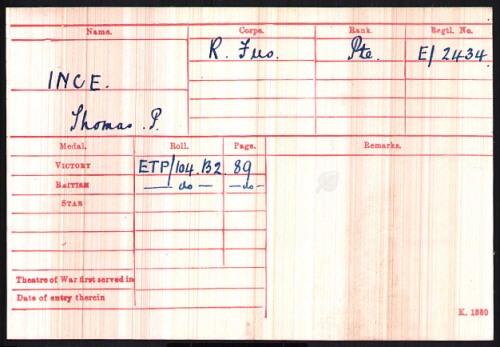 Name. Corps. Rank. Regtl. No.
R. Fus. Pte. E/2434.
INCE.
Thomas .P.
Medal. Roll. Page. Remarks.
VICTORY ETP/104.B2 89
BRITISH — do — — do —
STAR
Theatre of War first served in
Date of entry therein
K. 1380